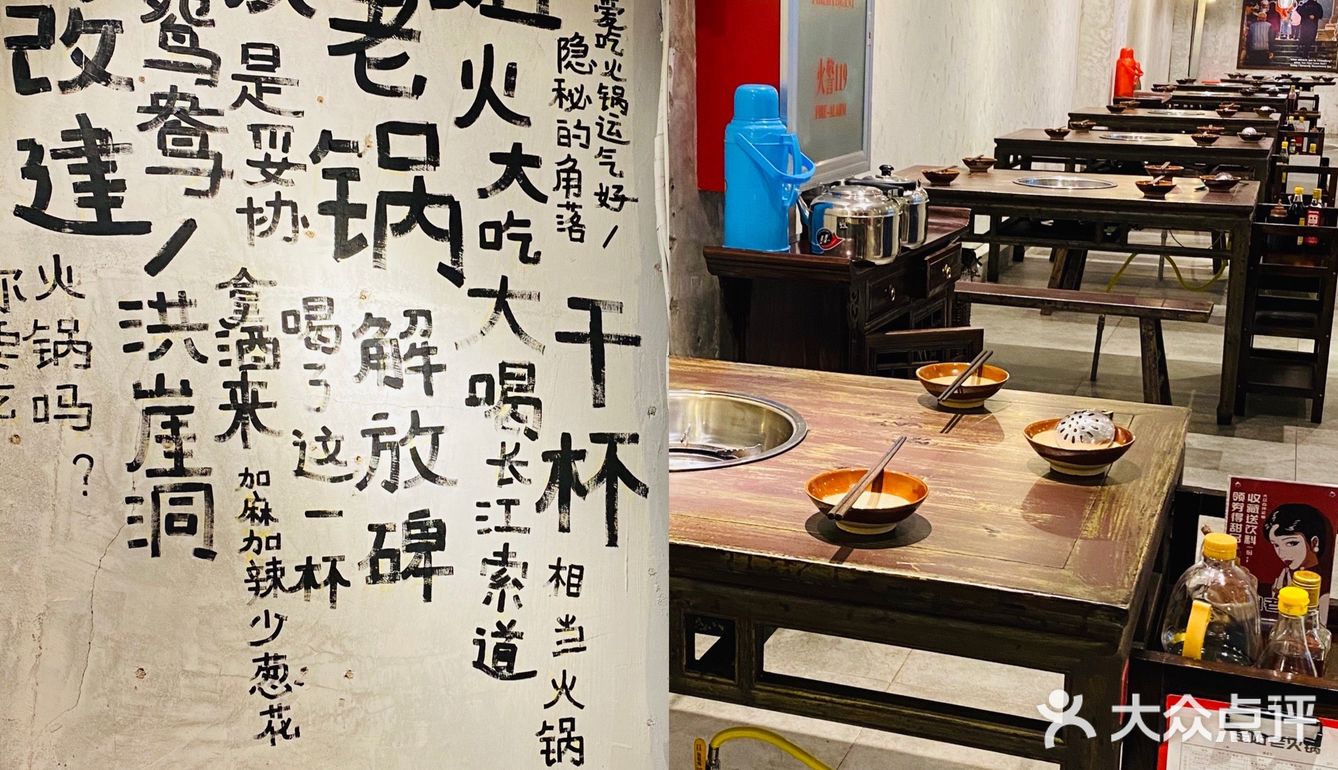 爱吃火锅运气好！
隐秘的角落
火大吃大喝
长江索道
干杯
相当火锅
老锅
解放碑
喝了这一杯
是妥协
拿酒来
加麻加辣少葱花
鸳鸯！
洪崖洞
改造
火锅吗？
火警119
FIRE ALARM
收藏送饮料
领券得甜品
大众点评
火锅